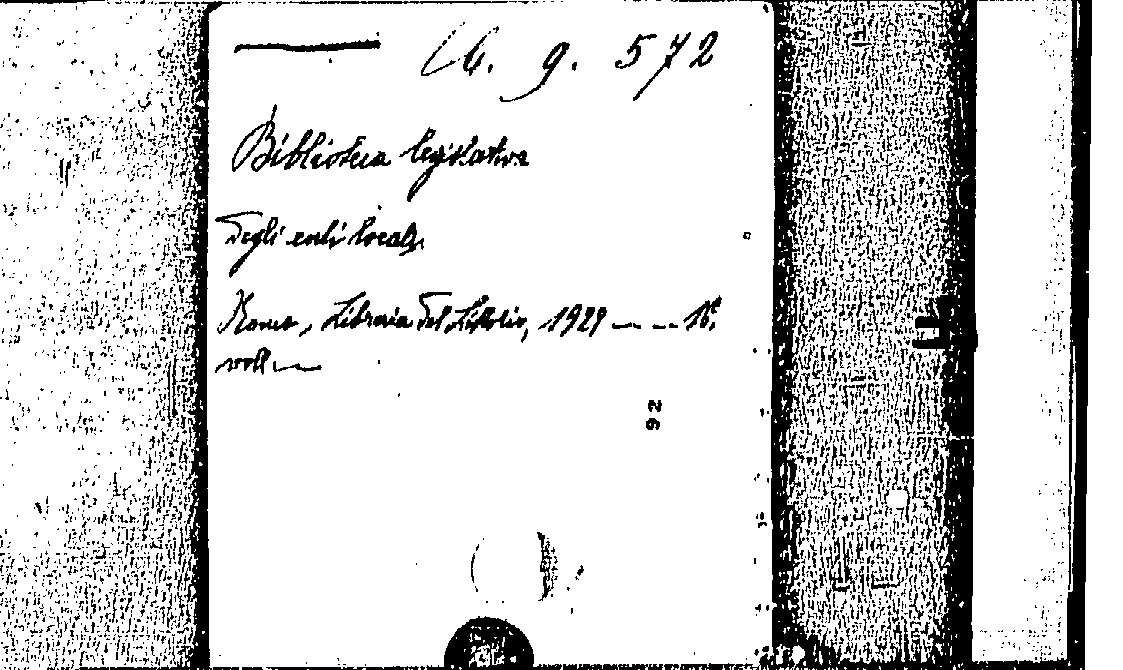 16. g. 572
Biblioteca legislativa
degli enti locali
Roma, Libreria del Littorio, 1929 — — 16.
voll —
92